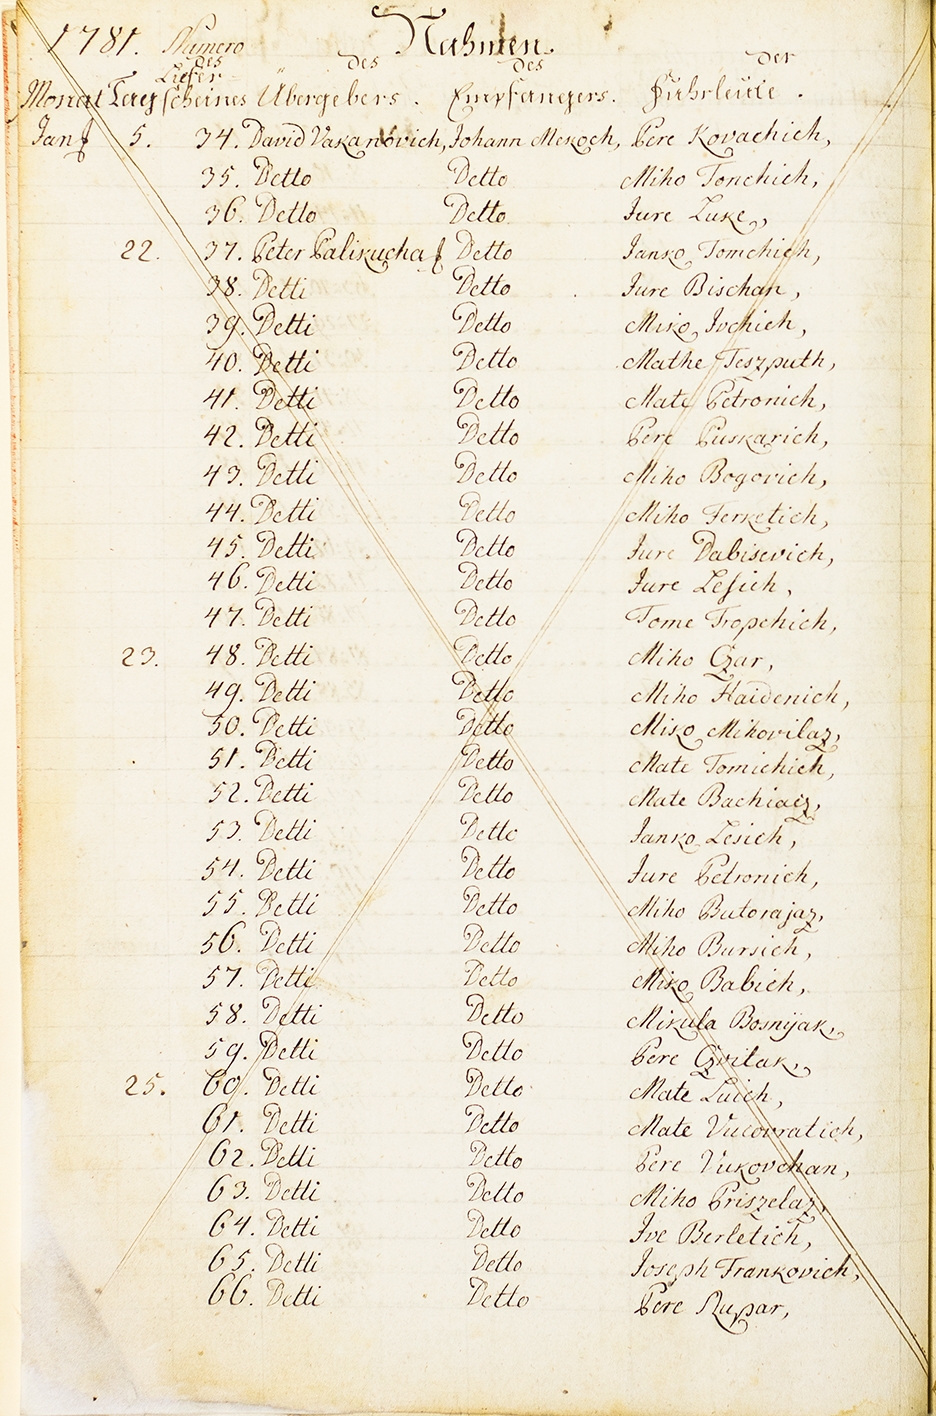 1781. Numero Nahmen.
des des des der
Liefer-
Monat Tag scheines Übergebers. Empfangers. Fuhrleute.
Jan 5. 34. David Vakanovich, Johann Mekoch, Pere Kovachich,
35. Detto Detto Miho Tonchich,
36. Detto Detto Jure Luke,
22. 37. Peter Palikucha Detto Janko Tomchich,
38. Detti Detto Jure Bischan,
39. Detti Detto Miko Ivchich,
40. Detti Detto Mathe Teszputh,
41. Detti Detto Mate Petronich,
42. Detti Detto Pere Puskarich,
43. Detti Detto Miho Bogovich,
44. Detti Detto Miho Ferketich,
45. Detti Detto Jure Dabisevich,
46. Detti Detto Jure Lesich,
47. Detti Detto Tome Tropchich,
23. 48. Detti Detto Miho Czar,
49. Detti Detto Miho Haidenich,
50. Detti Detto Miko Mihovilaz,
51. Detti Detto Mate Tomichich,
52. Detti Detto Mate Bachiacz,
53. Detti Detto Janko Lesich,
54. Detti Detto Jure Petronich,
55. Detti Detto Miho Butorajaz,
56. Detti Detto Miho Bursich,
57. Detti Detto Miko Babich,
58. Detti Detto Mikula Bosnÿak,
59. Detti Detto Pere Czvitak,
25. 60. Detti Detto Mate Luich,
61. Detti Detto Mate Vucovratich,
62. Detti Detto Pere Vukovchan,
63. Detti Detto Miho Priszelaz,
64. Detti Detto Ive Berletich,
65. Detti Detto Joseph Frankovich,
66. Detti Detto Pere Rupar,